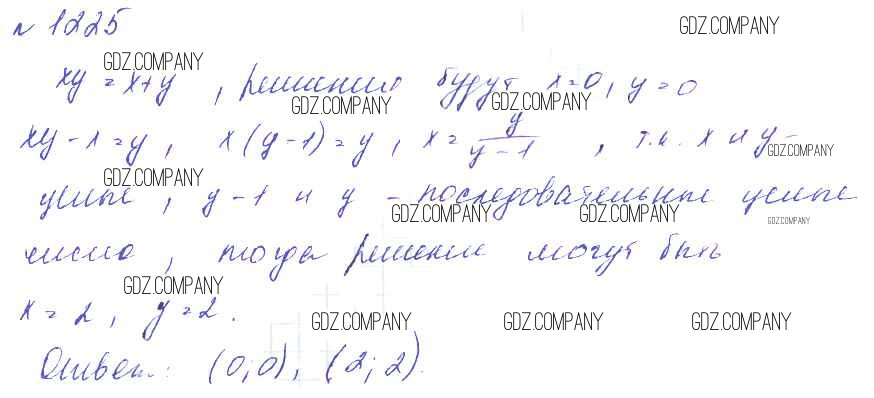 № 1225
GDZ.COMPANY
GDZ.COMPANY
xy = x+y , решения будут x=0, y=0
GDZ.COMPANY GDZ.COMPANY
xy - x = y , x(y-1) = y , x = y/(y-1) , т.к. x и y -
GDZ.COMPANY
GDZ.COMPANY
целые , y-1 и y - последовательные целые
GDZ.COMPANY GDZ.COMPANY GDZ.COMPANY
число , тогда решение могут быть
GDZ.COMPANY
x = 2 , y = 2 .
GDZ.COMPANY GDZ.COMPANY GDZ.COMPANY
Ответ: (0;0), (2;2).